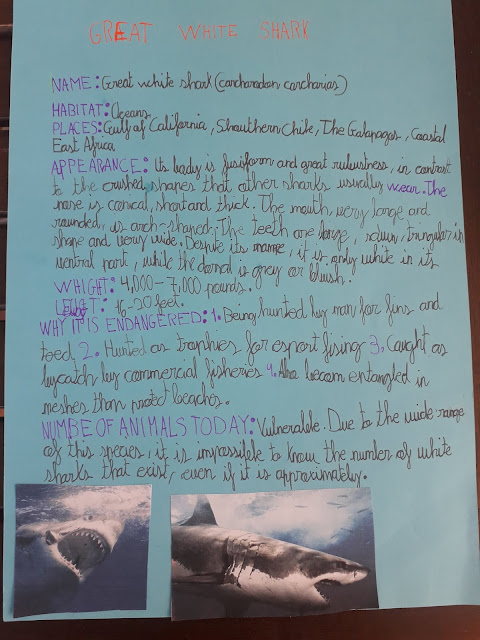 GREAT WHITE SHARK
NAME: Great white shark (carcharodon carcharias)
HABITAT: Oceans
PLACES: Gulf of California, Shouthern Chile, The Galapagos, Coastal
East Africa
APPEARANCE: Its body is fusiform and great rubustness, in contrast
to the crushed shapes that other sharks usually wear. The
nose is conical, short and thick. The mouth, very large and
rounded, is arch-shaped. The teeth are large, triangular in
shape and very wide. Despite its name, it is only white in its
ventral part, while the dorsal is grey or bluish.
WHIGHT: 4,000-7,000 pounds.
16-20 feet.
WHY IT IS ENDANGERED: 1. Being hunted by man for fins and
teed 2. Hunted as trophies for esport fising 3. Caught as
bycatch by commercial fisheries 4. Also becom entangled in
meshes than protect beaches.
NUMBE OF ANIMALS TODAY: Vulnerable. Due to the wide range
of this species, it is impossible to know the number of white
sharks that exist, even if it is approximately.